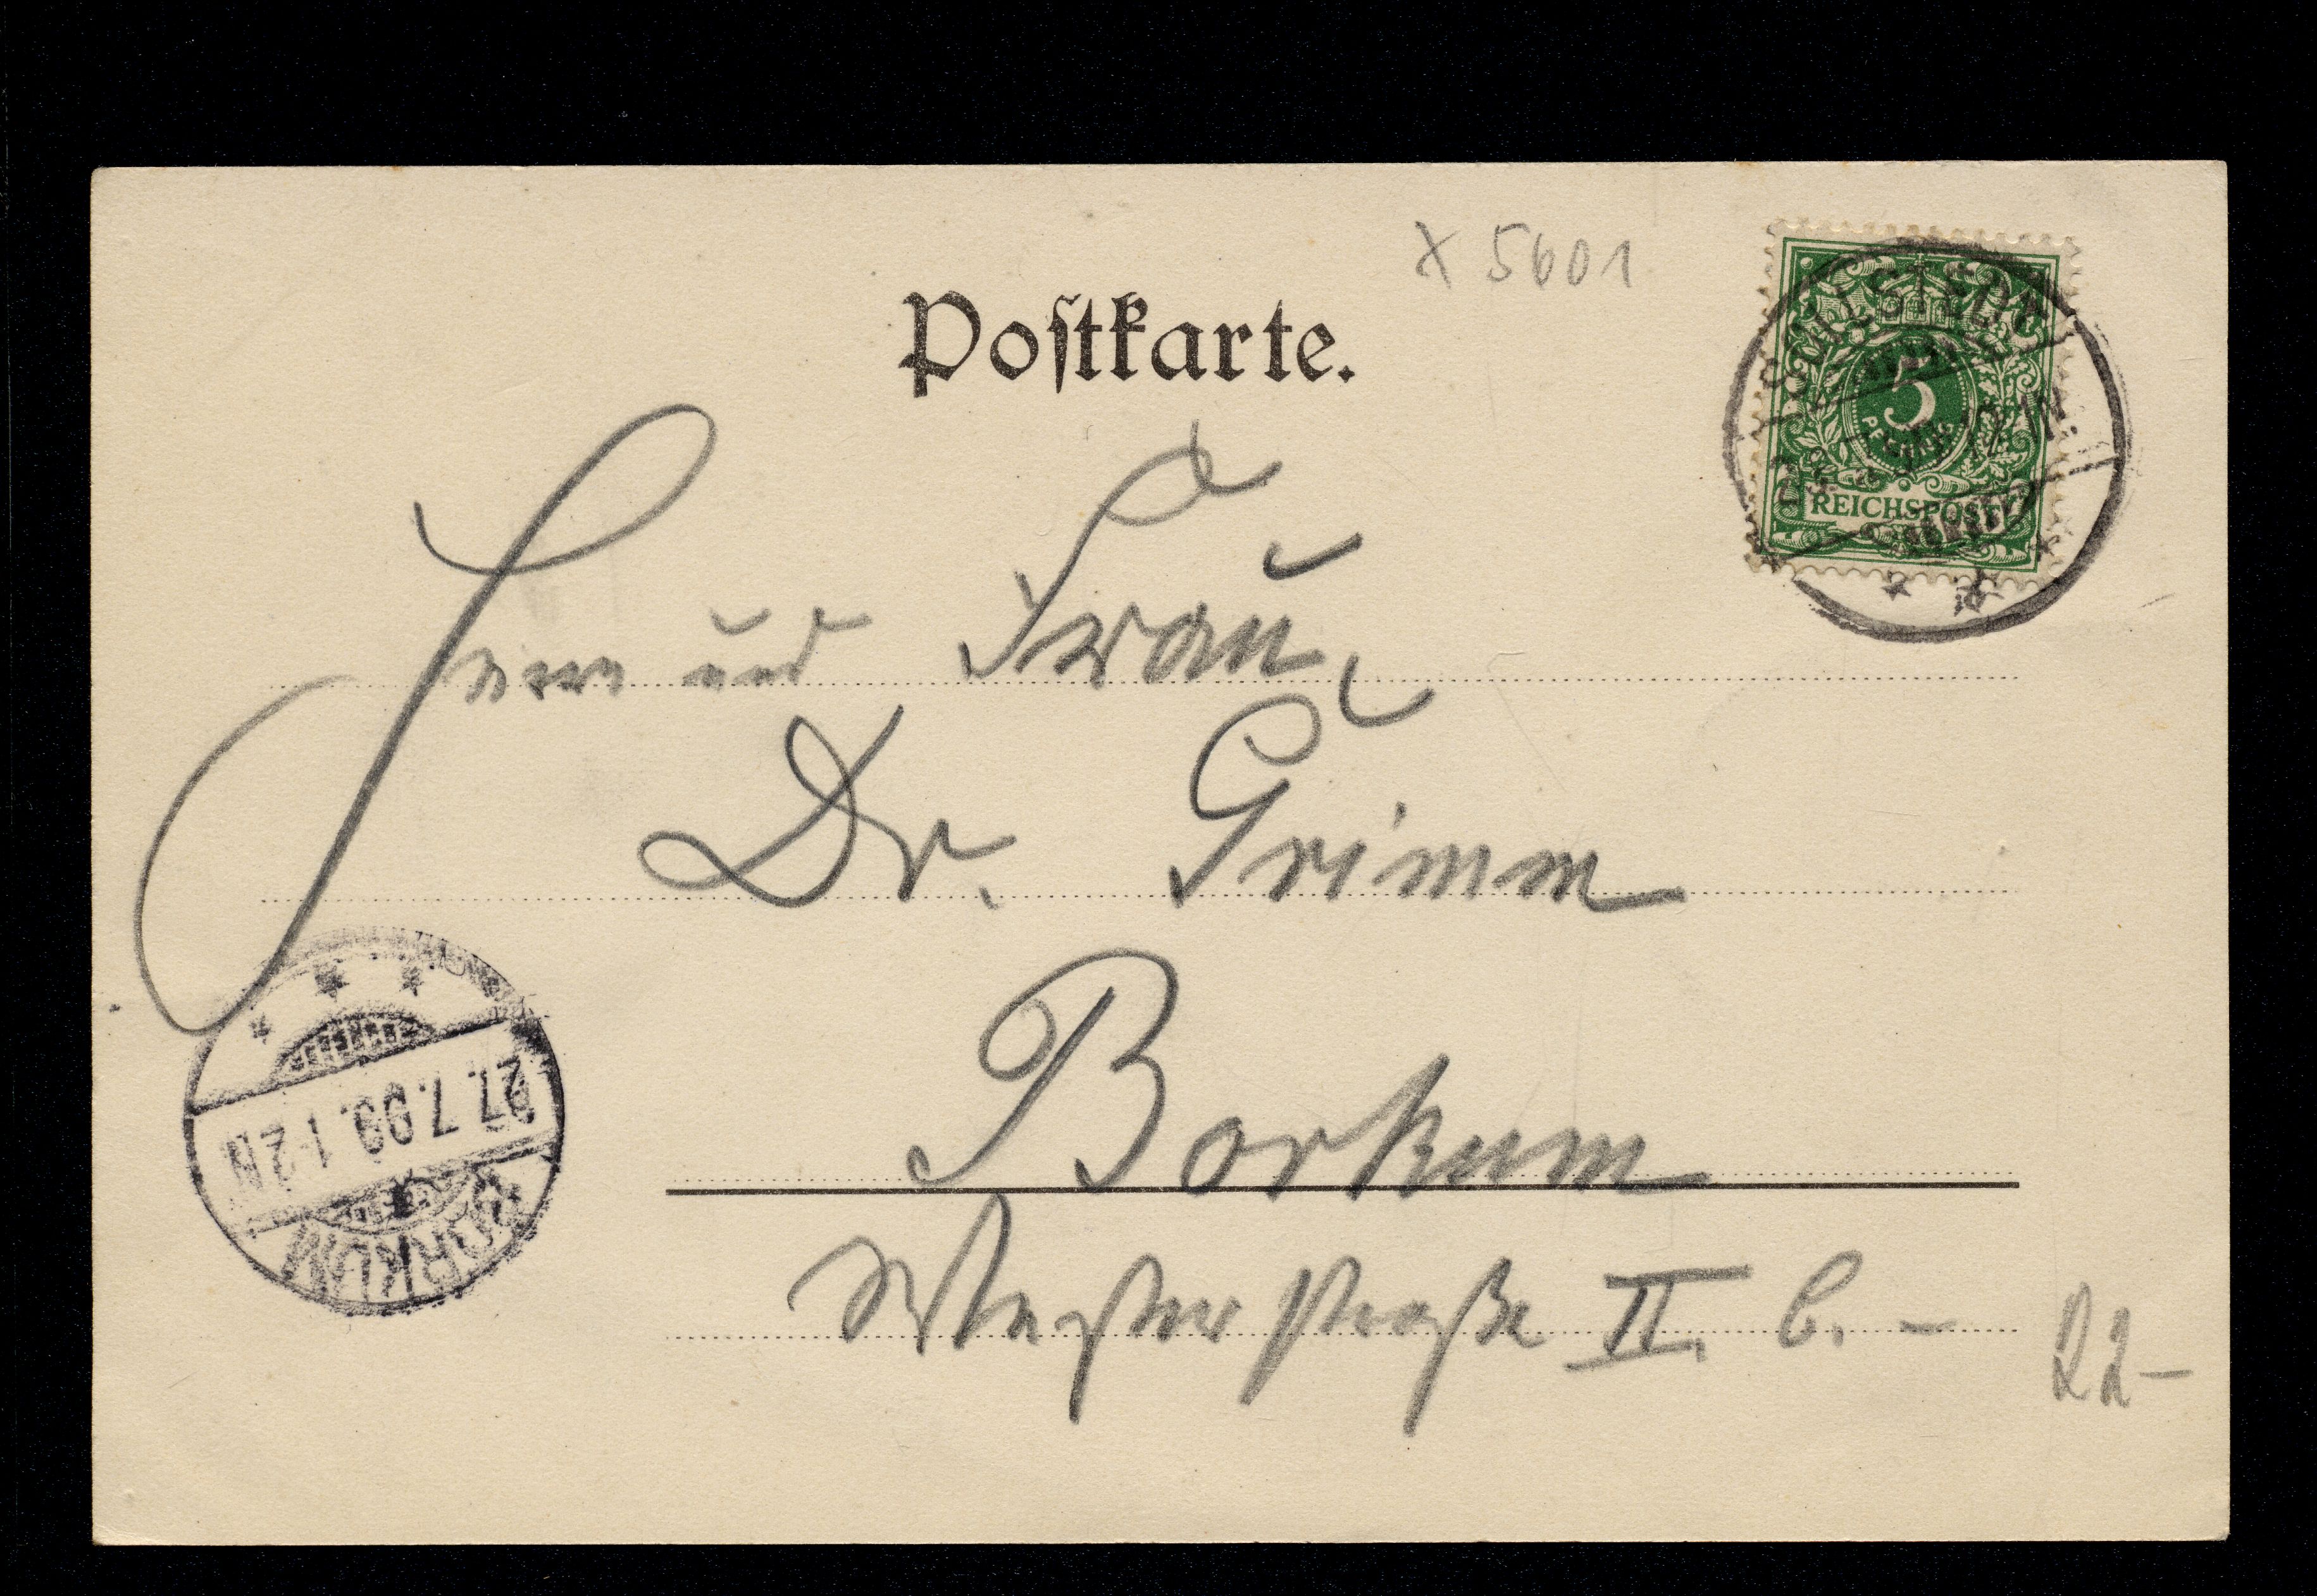 x 5601
Postkarte.
5
PFENNIG
REICHSPOST
Herrn und Frau
Dr. Grimm
Borkum
Westerstraße II. b. –
22–
27.7.99. 1-2N
BORKUM